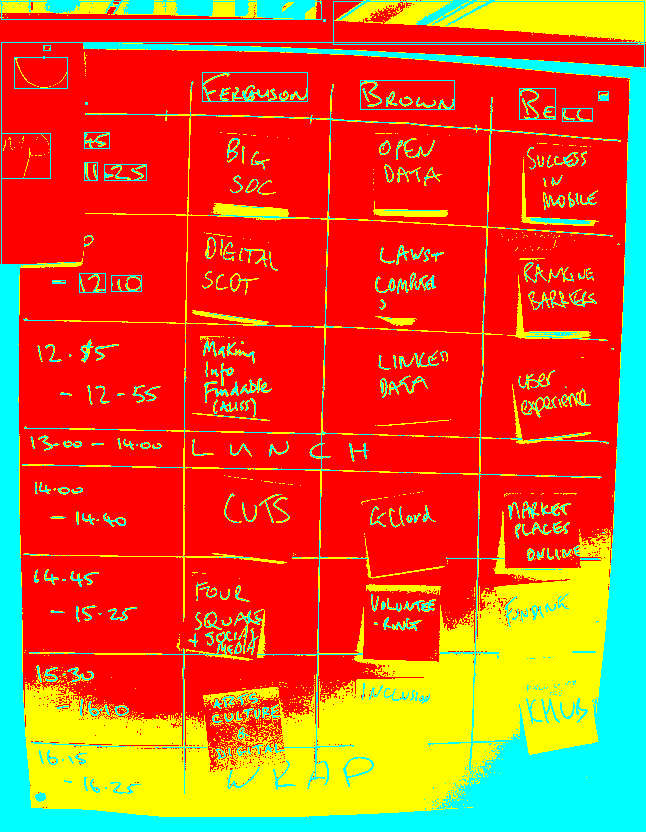 FERGUSON BROWN BELL
45
11.25
BIG
SOC
OPEN
DATA
SUCCESS
IN
MOBILE
- 12.10
DIGITAL
SCOT
RANKING
BARRIERS
12.15
- 12-55
Making
Info
Findable
(ALISS)
LINKED
DATA
USER
experience
13.00 - 14.00 LUNCH
14.00
- 14.40
CUTS
GCloud
MARKET
PLACES
ONLINE
14.45
- 15.25
FOUR
SQUARE
+ SOCIAL
MEDIA
VOLUNTEE
-RING
FUNDING
15.30
- 16.10
ARTS
CULTURE
&
DIGITAL
INCLUSION
KHUB
16.15
- 16.25
WRAP